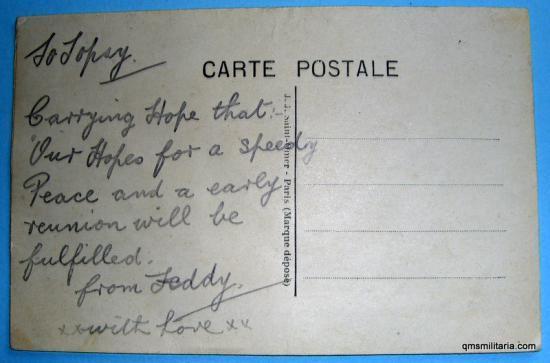 To Topsy.
CARTE POSTALE
Carrying Hope that:-
"Our Hopes for a speedy
Peace and a early
reunion will be
fulfilled.
from Teddy.
xx with love xx
J. J. Saint-Omer - Paris (Marque déposé)
qmsmilitaria.com